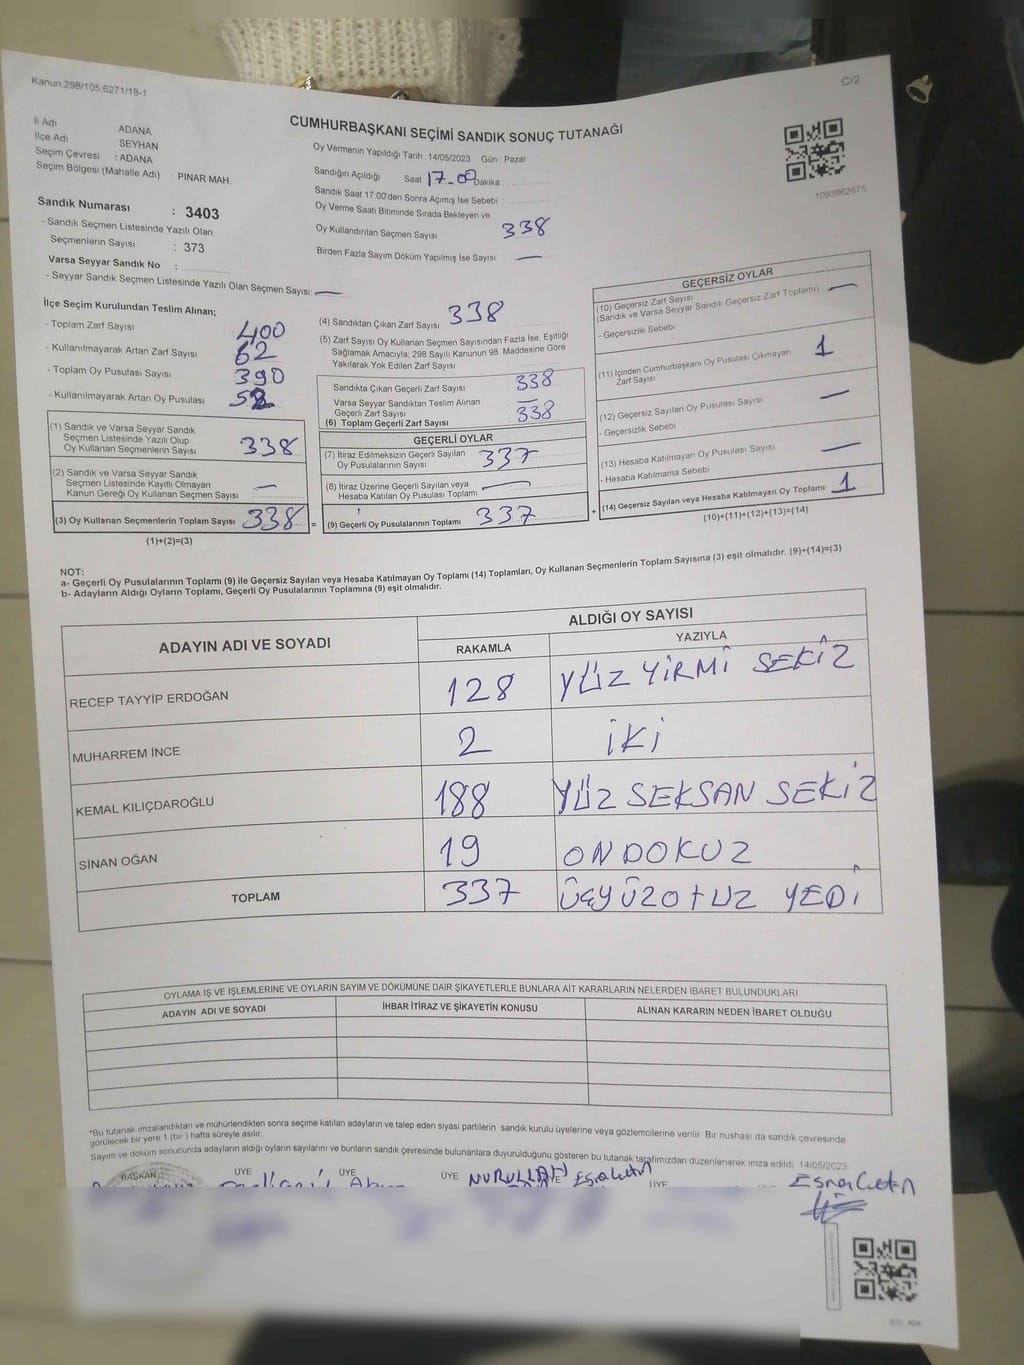 Kanun:298/105:6271/18-1
C/2
CUMHURBAŞKANI SEÇİMİ SANDIK SONUÇ TUTANAĞI
İl Adı : ADANA
İlçe Adı : SEYHAN
Seçim Çevresi : ADANA
Seçim Bölgesi (Mahalle Adı) : PINAR MAH.
Sandık Numarası : 3403
- Sandık Seçmen Listesinde Yazılı Olan
Seçmenlerin Sayısı : 373
Varsa Seyyar Sandık No :
- Seyyar Sandık Seçmen Listesinde Yazılı Olan Seçmen Sayısı: —
Oy Vermenin Yapıldığı Tarih : 14/05/2023 Gün : Pazar
Sandığın Açıldığı Saat 17.00 Dakika :
Sandık Saat 17.00'den Sonra Açımış İse Sebebi :
Oy Verme Saati Bitiminde Sırada Bekleyen ve
Oy Kullandırılan Seçmen Sayısı 338
Birden Fazla Sayım Döküm Yapılmış İse Sayısı —
1093862675
İlçe Seçim Kurulundan Teslim Alınan;
- Toplam Zarf Sayısı 400
- Kullanılmayarak Artan Zarf Sayısı 62
- Toplam Oy Pusulası Sayısı 390
- Kullanılmayarak Artan Oy Pusulası 52
(1) Sandık ve Varsa Seyyar Sandık
Seçmen Listesinde Yazılı Olup
Oy Kullanan Seçmenlerin Sayısı 338
(2) Sandık ve Varsa Seyyar Sandık
Seçmen Listesinde Kayıtlı Olmayan
Kanun Gereği Oy Kullanan Seçmen Sayısı —
(3) Oy Kullanan Seçmenlerin Toplam Sayısı 338 =
(1)+(2)=(3)
(4) Sandıktan Çıkan Zarf Sayısı 338
(5) Zarf Sayısı Oy Kullanan Seçmen Sayısından Fazla İse, Eşitliği
Sağlamak Amacıyla; 298 Sayılı Kanunun 98. Maddesine Göre
Yakılarak Yok Edilen Zarf Sayısı
Sandıkta Çıkan Geçerli Zarf Sayısı 338
Varsa Seyyar Sandıktan Teslim Alınan
Geçerli Zarf Sayısı —
(6) Toplam Geçerli Zarf Sayısı 338
GEÇERLİ OYLAR
(7) İtiraz Edilmeksizin Geçerli Sayılan
Oy Pusulalarının Sayısı 337
(8) İtiraz Üzerine Geçerli Sayılan veya
Hesaba Katılan Oy Pusulası Toplamı —
(9) Geçerli Oy Pusulalarının Toplamı 337 +
GEÇERSİZ OYLAR
(10) Geçersiz Zarf Sayısı
(Sandık ve Varsa Seyyar Sandık Geçersiz Zarf Toplamı) —
- Geçersizlik Sebebi
(11) İçinden Cumhurbaşkanı Oy Pusulası Çıkmayan
Zarf Sayısı 1
(12) Geçersiz Sayılan Oy Pusulası Sayısı —
- Geçersizlik Sebebi
(13) Hesaba Katılmayan Oy Pusulası Sayısı —
- Hesaba Katılmama Sebebi
(14) Geçersiz Sayılan veya Hesaba Katılmayan Oy Toplamı 1
(10)+(11)+(12)+(13)=(14)
NOT:
a- Geçerli Oy Pusulalarının Toplamı (9) ile Geçersiz Sayılan veya Hesaba Katılmayan Oy Toplamı (14) Toplamları, Oy Kullanan Seçmenlerin Toplam Sayısına (3) eşit olmalıdır. (9)+(14)=(3)
b- Adayların Aldığı Oyların Toplamı, Geçerli Oy Pusulalarının Toplamına (9) eşit olmalıdır.
ADAYIN ADI VE SOYADI
ALDIĞI OY SAYISI
RAKAMLA YAZIYLA
RECEP TAYYİP ERDOĞAN 128 YÜZ YİRMİ SEKİZ
MUHARREM İNCE 2 İKİ
KEMAL KILIÇDAROĞLU 188 YÜZ SEKSAN SEKİZ
SİNAN OĞAN 19 ONDOKUZ
TOPLAM 337 ÜÇYÜZOTUZ YEDİ
OYLAMA İŞ VE İŞLEMLERİNE VE OYLARIN SAYIM VE DÖKÜMÜNE DAİR ŞİKAYETLERLE BUNLARA AİT KARARLARIN NELERDEN İBARET BULUNDUKLARI
ADAYIN ADI VE SOYADI İHBAR İTİRAZ VE ŞİKAYETİN KONUSU ALINAN KARARIN NEDEN İBARET OLDUĞU
*Bu tutanak imzalandıktan ve mühürlendikten sonra seçime katılan adayların ve talep eden siyasi partilerin sandık kurulu üyelerine veya gözlemcilerine verilir. Bir nushası da sandık çevresinde
görülecek bir yere 1 (bir ) hafta süreyle asılır.
Sayım ve döküm sonucunda adayların aldığı oyların sayılarını ve bunların sandık çevresinde bulunanlara duyurulduğunu gösteren bu tutanak tarafımızdan düzenlenerek imza edildi. 14/05/2023
BAŞKAN ÜYE ÜYE ÜYE ÜYE ÜYE
NURULLAH Esra Çetin
Esra Çetin